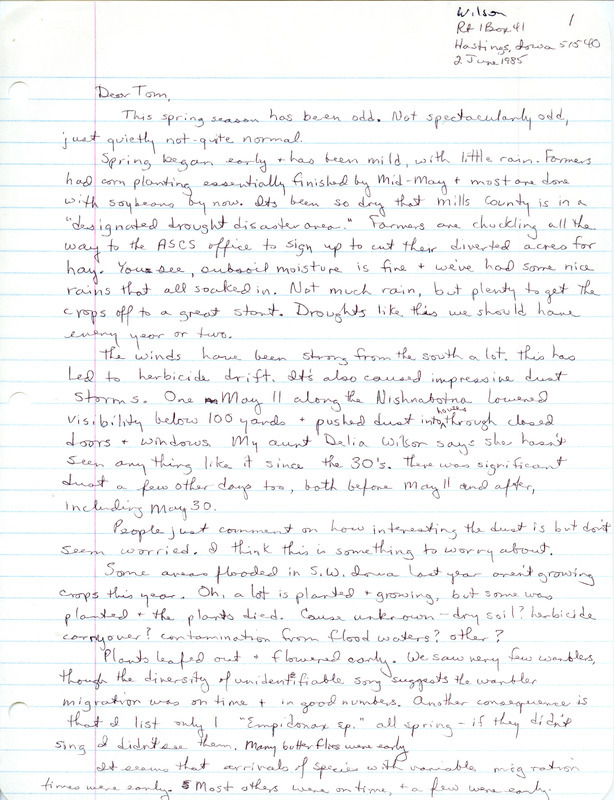 Wilson
1
Rt 1 Box 41
Hastings, Iowa 51540
2 June 1985
Dear Tom,
This spring season has been odd. Not spectacularly odd,
just quietly not-quite normal.
Spring began early + has been mild, with little rain. Farmers
had corn planting essentially finished by Mid-May + most are done
with soybeans by now. Its been so dry that Mills County is in a
"designated drought disaster area." Farmers are chuckling all the
way to the ASCS office to sign up to cut their diverted acres for
hay. You see, subsoil moisture is fine + we've had some nice
rains that all soaked in. Not much rain, but plenty to get the
crops off to a great start. Droughts like this we should have
every year or two.
The winds have been strong from the south a lot. this has
led to herbicide drift. It's also caused impressive dust
storms. One May 11 along the Nishnabotna lowered
visibility below 100 yards + pushed dust into houses through closed
doors + windows. My aunt Delia Wilson says she hasn't
seen anything like it since the 30's. There was significant
dust a few other days too, both before May 11 and after,
including May 30.
People just comment on how interesting the dust is but don't
seem worried. I think this is something to worry about.
Some areas flooded in S.W. Iowa last year aren't growing
crops this year. Oh, a lot is planted + growing, but some was
planted + the plants died. Cause unknown - dry soil? herbicide
carryover? contamination from flood waters? other?
Plants leafed out + flowered early. We saw very few warblers,
though the diversity of unidentifiable song suggests the warbler
migration was on time + in good numbers. Another consequence is
that I list only 1 "Empidonax sp." all spring - if they didn't
sing I didn't see them. Many butterflies were early
It seems that arrivals of species with variable migration
times were early. Most others were on time, + a few were early.